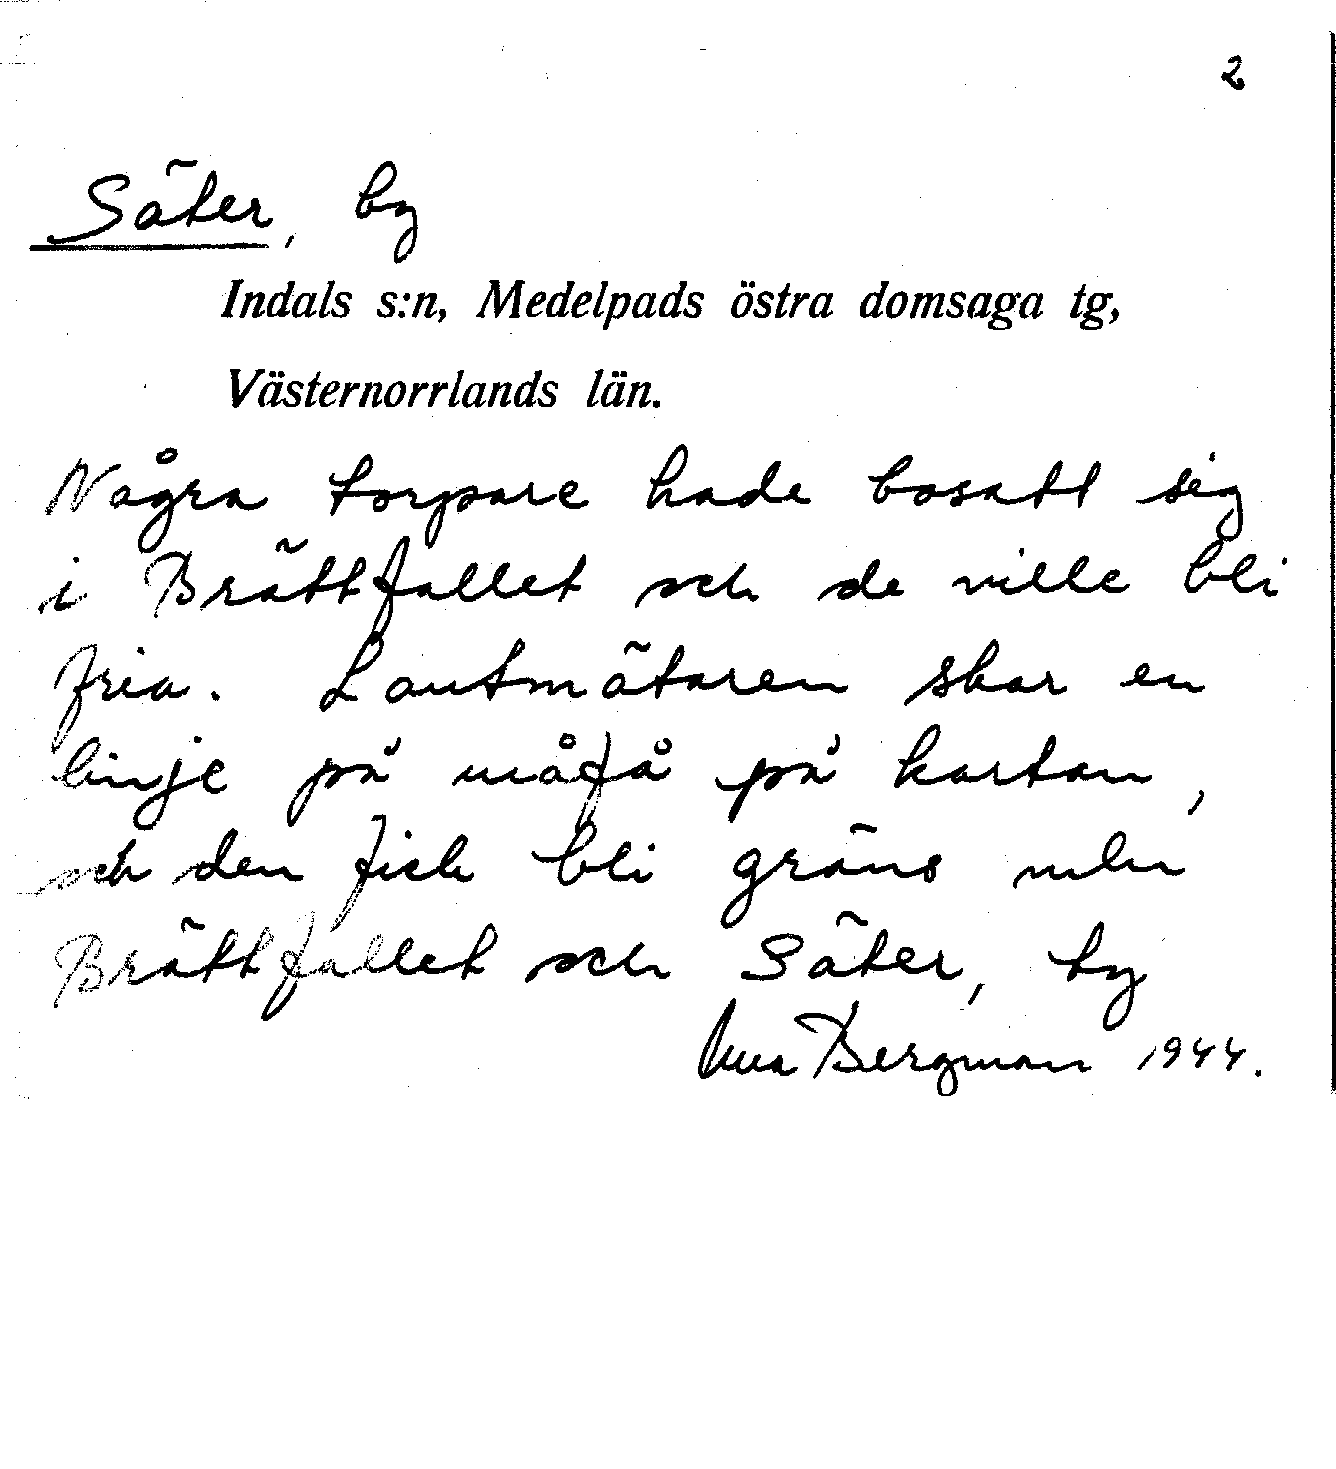 2
Säter, by
Indals s:n, Medelpads östra domsaga tg,
Västernorrlands län.
Några torpare hade bosatt sig
i Brättfallet och de ville bli
fria. Lantmätaren skar en
linje på måfå på kartan,
och den fick bli gräns mln
Brättfallet och Säter, by
Bergman 1944.